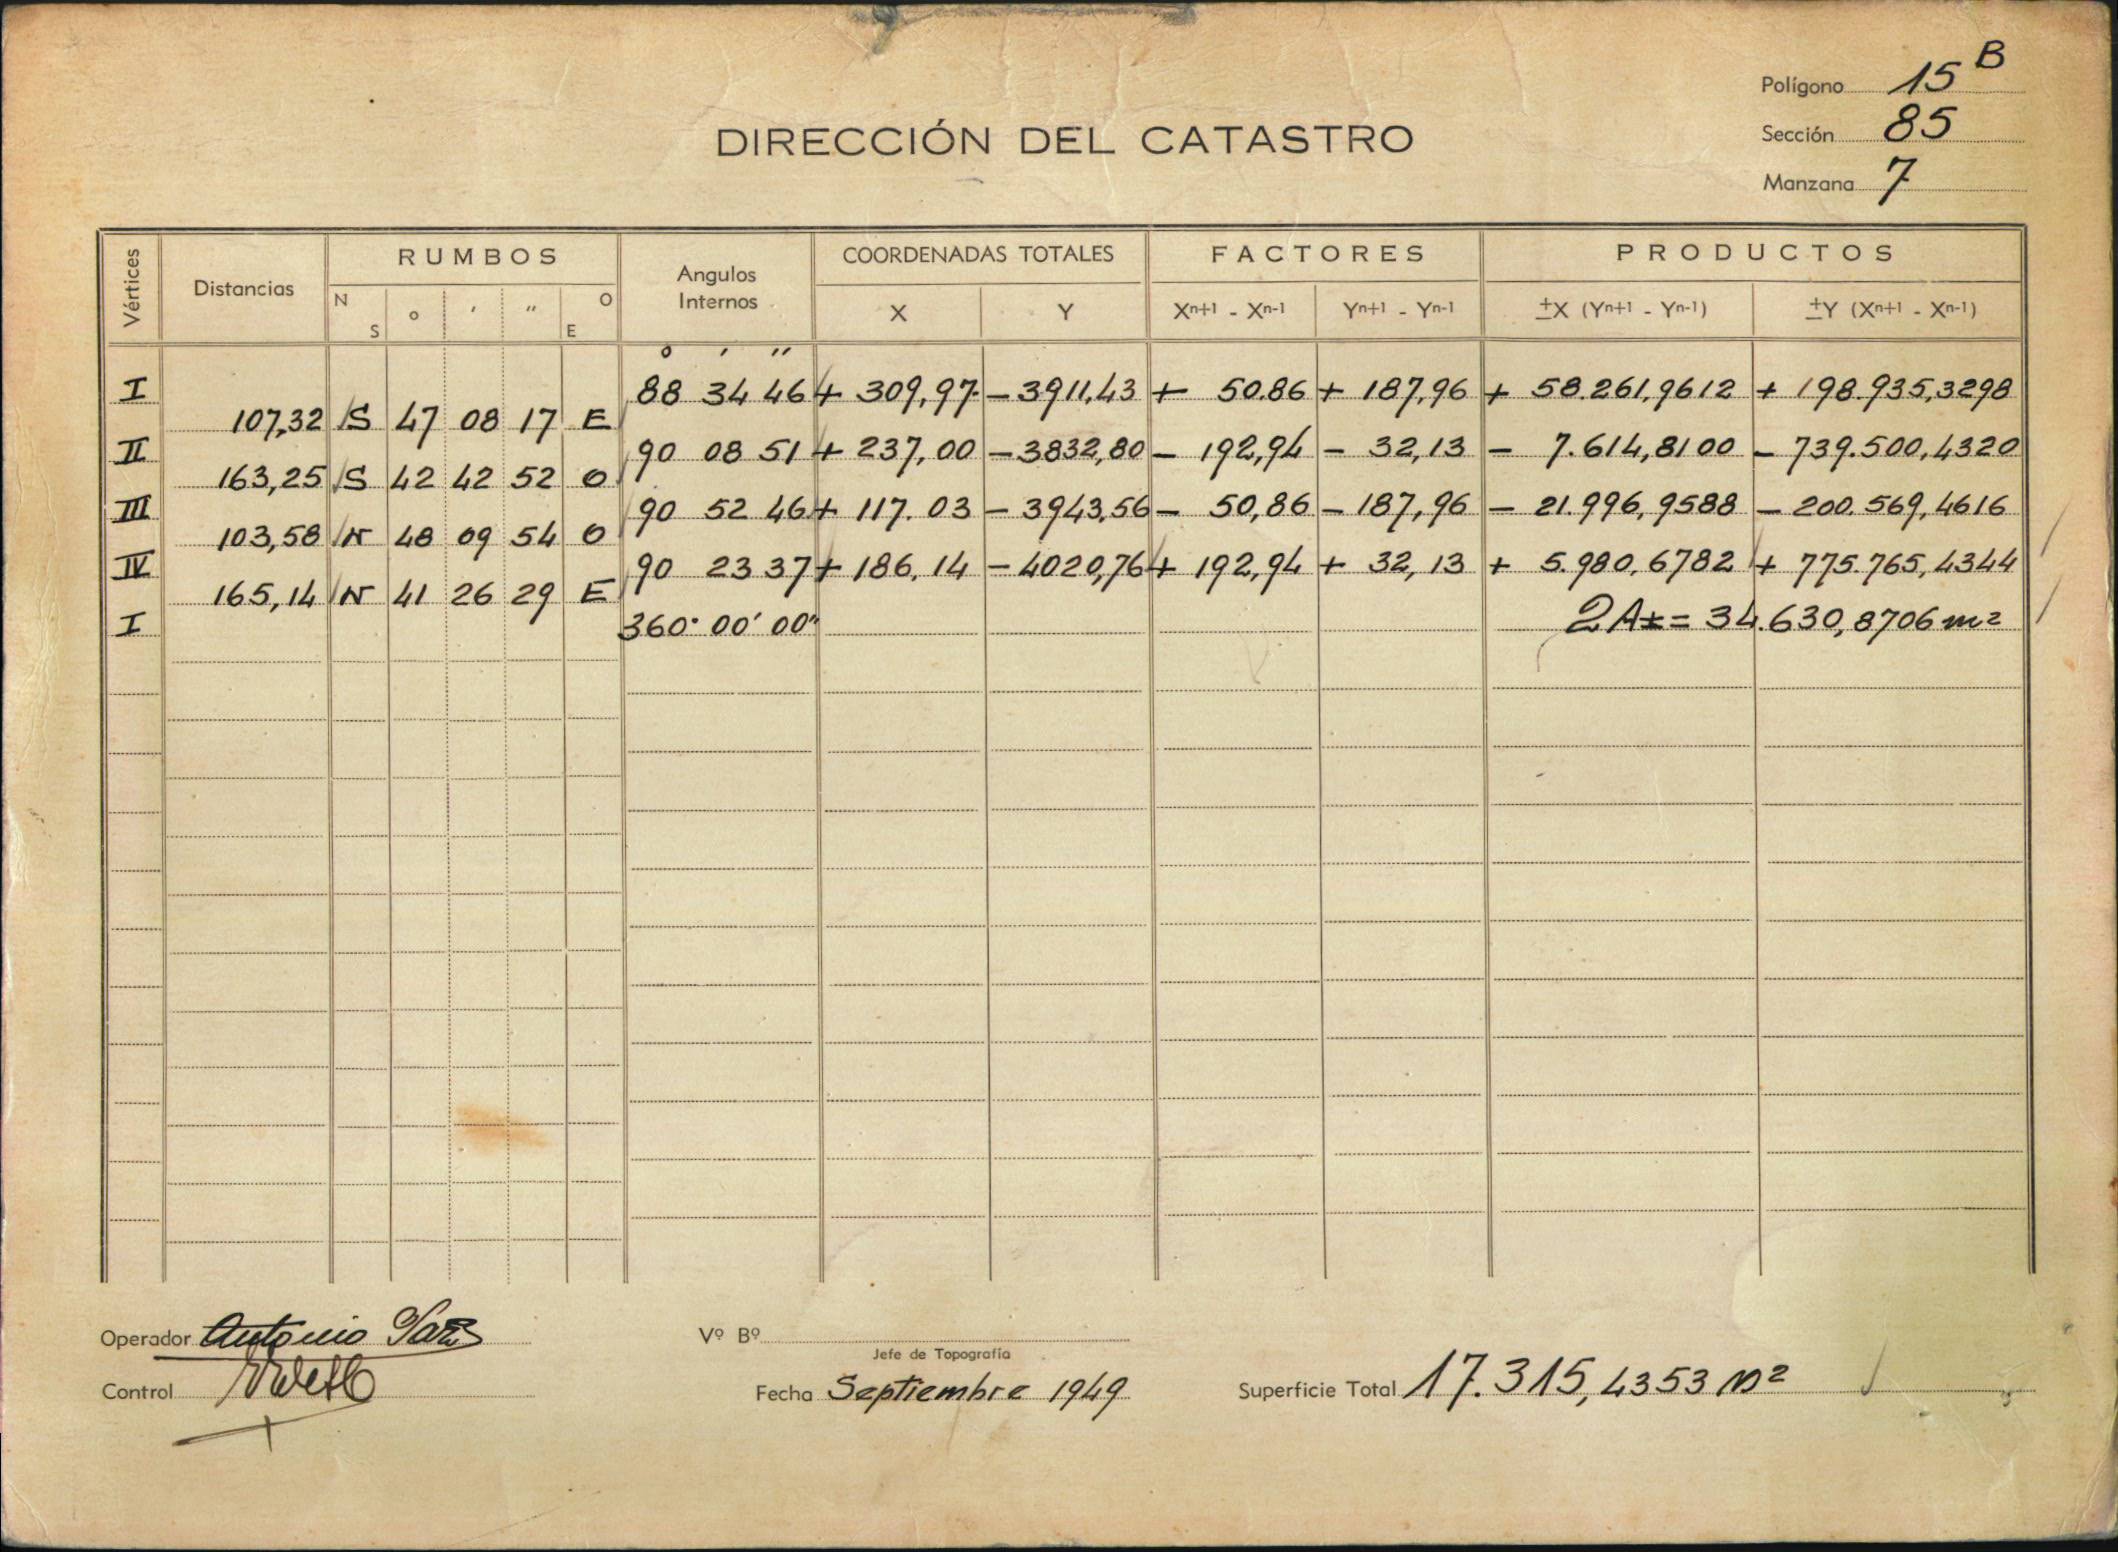 Polígono 15 B
Sección 85
Manzana 7
DIRECCIÓN DEL CATASTRO
Vértices Distancias RUMBOS Angulos Internos COORDENADAS TOTALES FACTORES PRODUCTOS
N S o ′ ″ O E X Y Xn+1 - Xn-1 Yn+1 - Yn-1 ±X (Yn+1 - Yn-1) ±Y (Xn+1 - Xn-1)
o ′ ″
I 88 34 46 + 309,97 - 3911,43 + 50.86 + 187,96 + 58.261,9612 + 198.935,3298
107,32 S 47 08 17 E
II 90 08 51 + 237,00 - 3832,80 - 192,94 - 32,13 - 7.614,8100 - 739.500,4320
163,25 S 42 42 52 O
III 90 52 46 + 117.03 - 3943,56 - 50,86 - 187,96 - 21.996,9588 - 200.569,4616
103,58 N 48 09 54 O
IV 90 23 37 + 186,14 - 4020,76 + 192,94 + 32,13 + 5.980,6782 + 775.765,4344
165,14 N 41 26 29 E
I 360° 00′ 00″ 2A± = 34.630,8706 m²
Operador Antonio
Vº Bº
Jefe de Topografía
Control
Fecha Septiembre 1949
Superficie Total 17.315,4353 m²